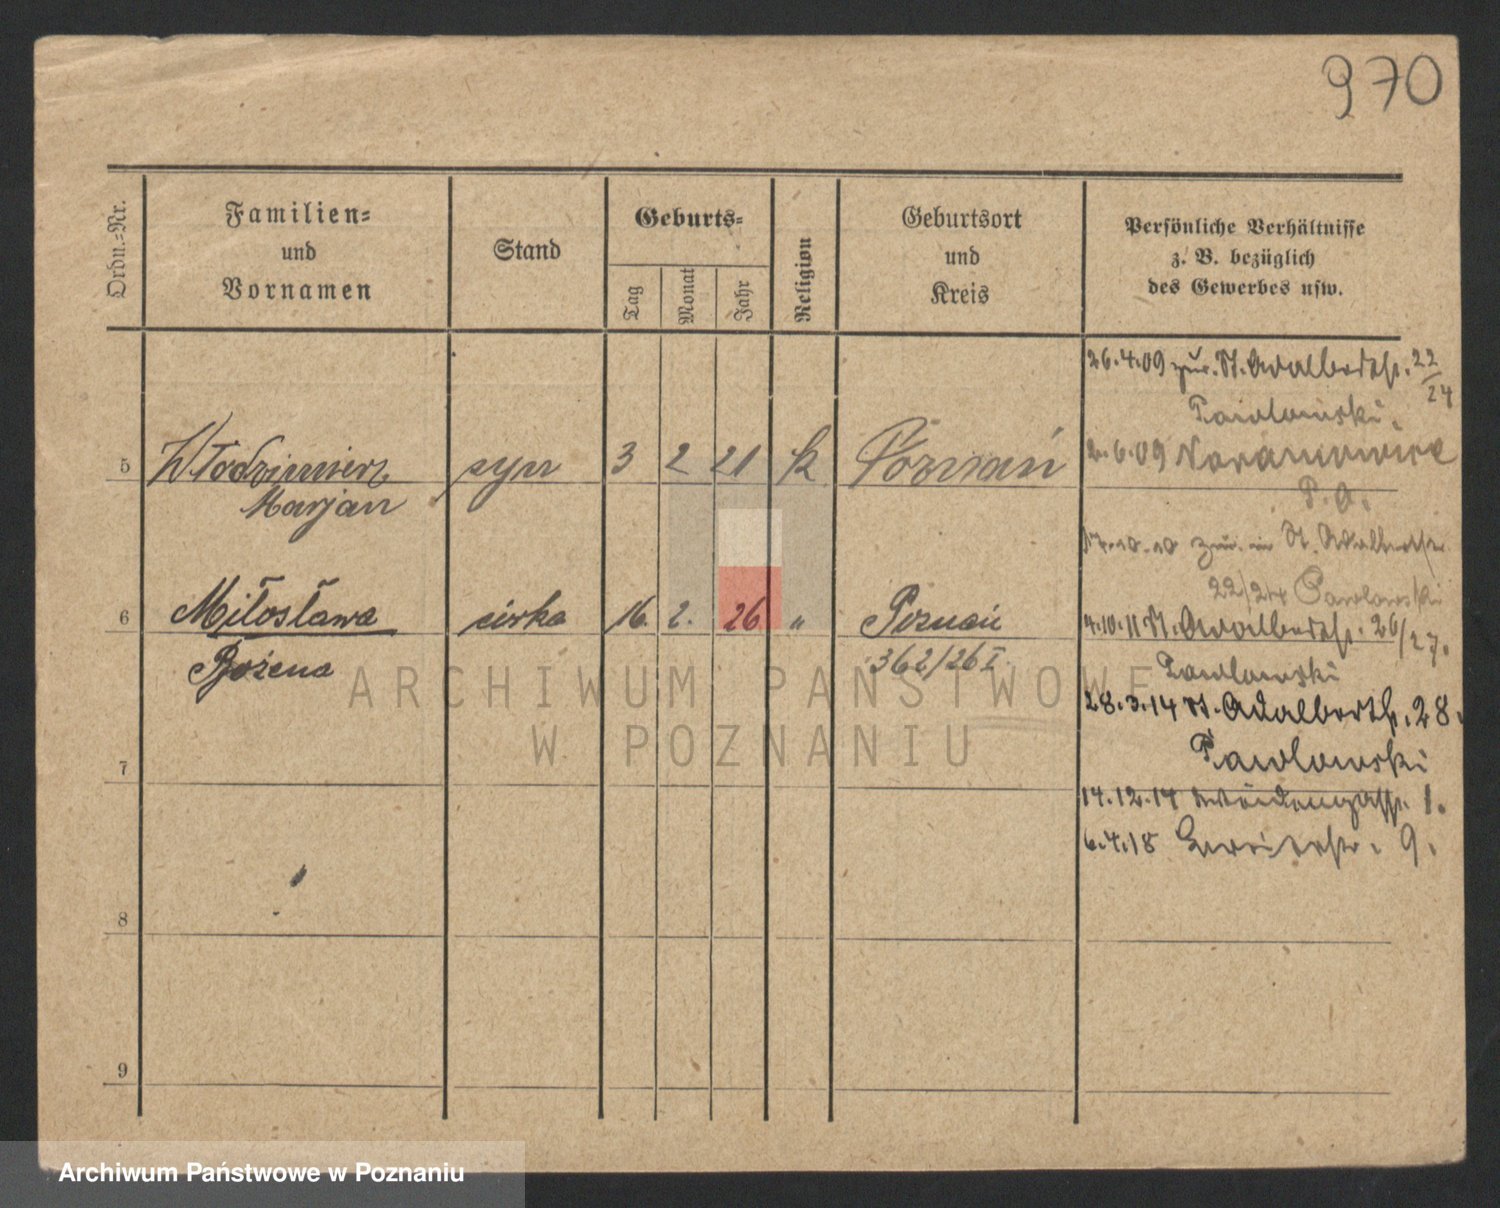 970
Ordn.-Nr.
Familien-
und
Vornamen
Stand
Geburts-
Tag
Monat
Jahr
Religion
Geburtsort
und
Kreis
Persönliche Verhältnisse
z. B. bezüglich
des Gewerbes usw.
26.4.09 zur. St. Adalbertstr. 22/24
Pawlowski.
5 Włodzimierz syn 3 2 21 k Poznań
Marjan
2.6.09
P. O.
zur. in St. Adalbertstr.
22/24 Pawlowski
6 Miłosława córka 16. 2. 26 " Poznań
Bożena 362/26 I
4.10.11 St. Adalbertstr. 26/27.
Pawlowski
28.3.14 St. Adalbertstr. 28.
Pawlowski
7
14.12.14 Weidengasse 1.
6.4.18 9.
8
9
ARCHIWUM PAŃSTWOWE
W POZNANIU
Archiwum Państwowe w Poznaniu